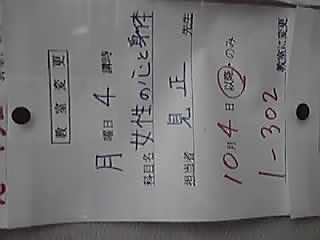 教室変更
月曜日 4 講時
科目名 女性の心と身体
担当者 見正 先生
10月4日以降のみ
1-302 教室に変更